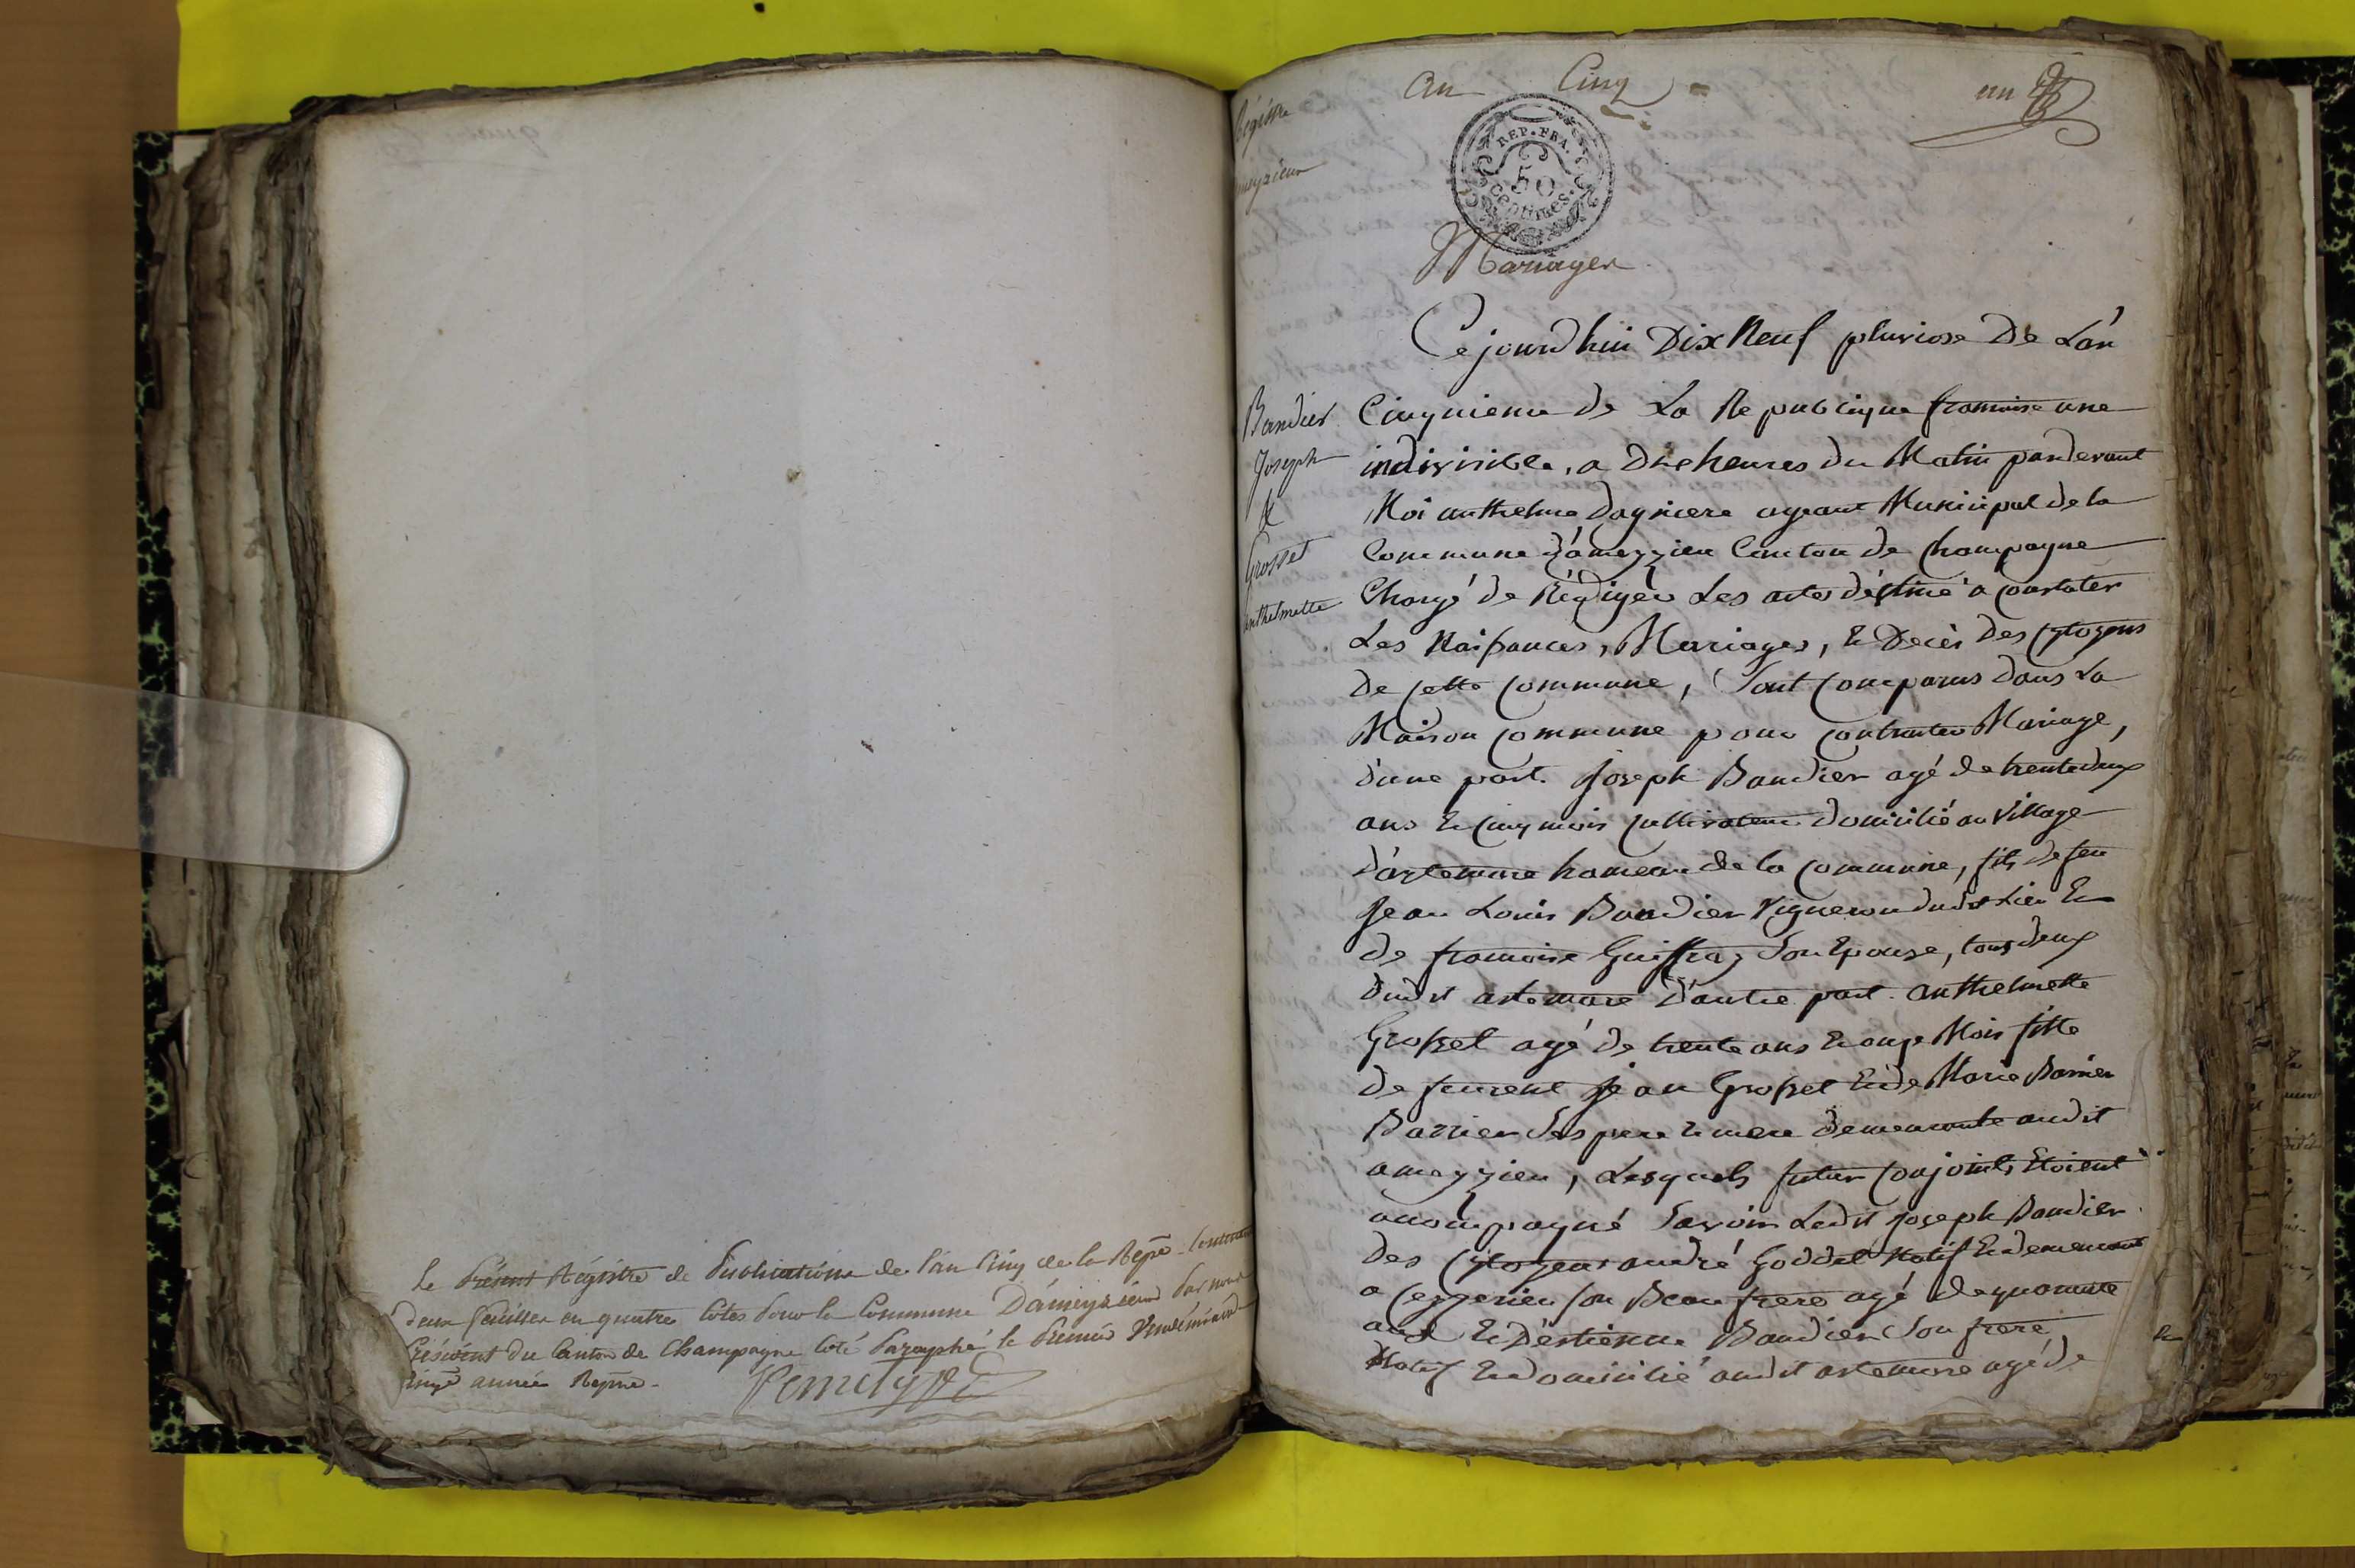 Le Présent Régistre de Publications de l'an Cinq de la Repne Contenant
deux feuilles en quatre Cotes pour la Commune D'ameyzieu Par nous
Présidént du Canton de Champagne Coté Paraphé le Premier Vendémiaire
Cinqe année Repne.
Régistre
meyzieux
an Cinq
un
REP. FRA.
50
centimes
Mariages
Cejourdhui Dix Neuf pluviose De L'an
Baudier
Joseph
&
Grosset
anthelmette
Cinquieme de La Republique francaise une
indivisible, a Dix heures du Matin pardevant
Moi anthelme Dagniere ageant Municipal de la
Commune d'ameyzieu Canton de Champagne
Chargé de Rédiger Les actes déstiné a Constater
Les Naissances, Mariages, & Décès Des Cytoyens
De Cette Commune, Sont Comparus Dans La
Maison Commune pour Contracter Mariage,
D'une part Joseph Baudier agé de trentedeux
ans & Cinq mois Cultivateur Domicilié au Village
D'artemare hameau de la Commune, fils De feu
Jean Louis Baudier Vigneron dudit Lieu &
De francoise Guiffray Son Epouse, tous deux
Dudit artemare D'autre part anthelmette
Grosset agé de trente ans & onze Mois fille
De furent Jean Grosset & de Marie Barrier
Barrier Ses pere & mere Demeurante audit
ameyzieu, Lesquels futur Conjoints Etoient
acompagné Savoir Ledit Joseph Baudier
Des Cytoyens andré Goddet Natif & demeurant
a Ceyzerieu Son Beau frere agé de quarante
ans & D'estienne Baudier Son frere,
Natif & Domicilié audit artemare agé de